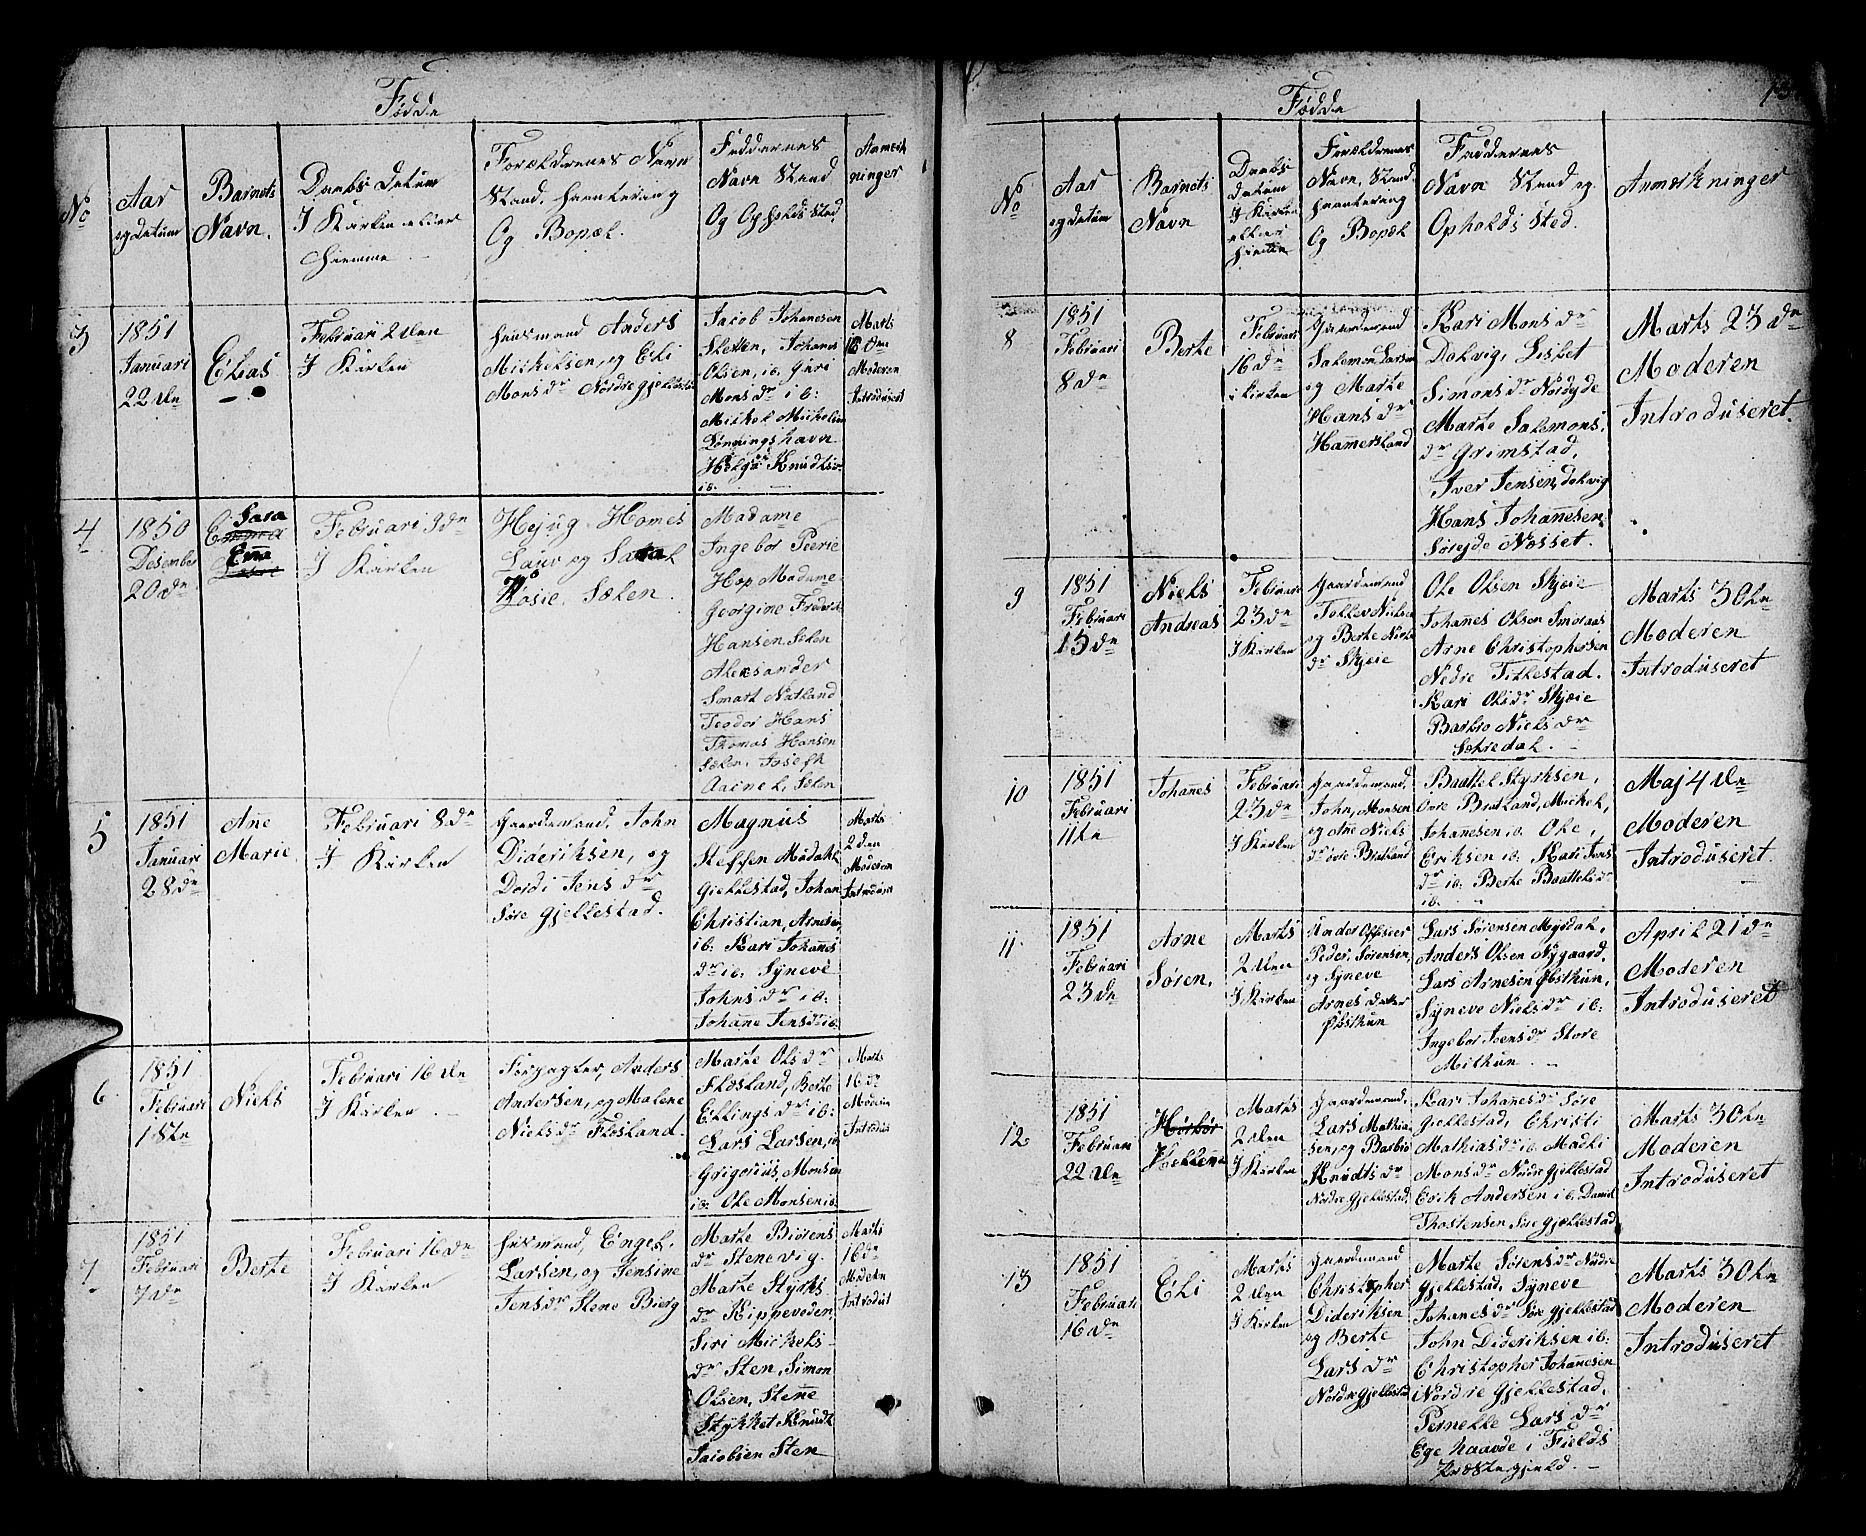 Fødde
No
Aar
og Datum
Barnets
Navn.
Daabs Datum
I Kirken eller
Hiemme
Forældrenes Navn
Stand, Haantering
Og Bopæl.
Faddernes
Navn Stand
Og Opholds Sted
Anmerk
ninger
3
1851
Januari
22 den
Elias
Februari 2 den
I Kirken
Husmand Anders
Mickelsen, og Eli
Mons dr Nordre Gjellestad
Jacob Johanesen
Johanes
Olsen, ib. Guri
Mons dr ib:
Mickel Mickelsen
Lønningshavn
Knudtsen
ib.
Marts
Moderen
Introduseret
4
1850
Desember
20 dn
Sara
Emma
Februari 9 dn
I Kirken
Homes
og Sara
Rosie. Sælen.
Madame
Ingebor Peerie
Hop Madame
Georgine Frederik
Hansen Sælen
Aleksander
Smart Natland
Teodor Hans
Thomas Hansen
Sælen, Josefh
Sælen
5
1851
Januari
28 dn
Ane
Marie.
Februari 8 dn
I Kirken
Gaardemand, John
Dideriksen, og
Dordi Jens dr
Søre Gjellestad.
Magnus
Steffen
Gjellestad, Johan
Christian, Arnesen
ib: Kari Johanes
dr ib. Syneve
Johns dr ib:
Johane Jens dr ib:
Marts
2 den
Moderen
Introdus
6
1851
Februari
1 ste
Niels
Februari 16 den
I Kirken
Forpagter, Anders
Andersen, og Malene
Niels dr Flæsland.
Marte Ols dr
Flæsland, Berte
Ellings dr ib:
Lars Larsen, ib
Grigorius, Monsen
ib: Ole Monsen ib
Marts
16 dn
Modern
Introdus
7
1851
Februari
7 dn
Berte
Februari 16 dn
I Kirken
Husmand, Engel.
Larsen, og Jensine
Jens dr Stene Bierg
Marte Biørens
dr Stenevig.
Marte Styrks
dr Kippeveden,
Siri Mickels-
dr Sten, Simon
Olsen, Stene
Stykket Knudt
Jacobsen Sten
Marts
16 dn
Modern
Introdust
Fødde
No
Aar
og Datum
Barnets
Navn
Daabs
Datum
I Kirken
eller
Hiemme
Forældrenes
Navn, Stand,
Haantering
Og Bopæl
Faddernes
Navn Stand og
Opholds Sted.
Anmerkninger
8
1851
Februari
8 dn
Berte
Februari
16 dn
i Kirken
Gaardemand
Salemon Larsen
og Marte
Hans dr
Hamersland
Kari Mons dr
Dolvig, Lisbet
Simons dr Nordeyde
Marte Salemons.
dr Grimstad,
Iver Jensen, Dolvig
Hans Johanesen
Søreyde Næsset.
Marts 23 dn
Moderen
Introduseret.
9
1851
Februari
15 dn
Niels
Andreas
Februari
23 dn
I Kirken
Gaardemand
Tollev Nielsen
og Berte Niels
dr Skjæie
Ole Olsen Skjæie
Johanes Olsen Smøraas
Arne Christophersen
Nedre Titlestad.
Kari Ols dr Skjæie
Barbro Niels dr
Sætredal.
Marts 30 te
Moderen
Introduseret
10
1851
Februari
11 te
Johanes
Februari
23 dn
I Kirken
Gaardemand,
John, Monsen
og Ane Niels
dr øvre Bratland
Baattel Styrksen,
Øvre Bratland, Mickel,
Johanesen ib. Ole,
Eriksen ib: Kari Jens
dr ib: Berte Baattels dr
ib.
Maj 4 den
Moderen
Introduseret.
11
1851
Februari
23 dn
Arne
Søren.
Marts
2 den
I Kirken
Under Offiseer
Peder, Sørensen
og Syneve
Arnes datter
Øvsthun
Lars Sørensen Myrdal,
Anders Olsen Nygaard,
Lars Arnesen Øvsthun,
Syneve Niels dr ib:
Ingebor Ivens dr Store
Milthun
April 21 dn
Moderen
Introduseret
12
1851
Februari
22 den
Marts
2 den
I Kirken
Gaardemand,
Lars Mathia
sen, og Barbro
Knudts dr
Nordre Gjellestad
Kari Johanes dr Søre
Gjellestad, Christi
Mathias dr ib. Madli
Mons dr Nodre Gjellestad
Erik Andersen ib. Daniel
Thostensen Søre Gjellestad
Marts 30 te
Moderen
Introduseret
13
1851
Februari
16 dn
Eli
Marts
2 den
I Kirken
Gaardemand
Christopher
Dideriksen
og Berte
Lars dr
Nordre Gjellestad
Marte Sørens dr Nodre
Gjellestad, Syneve
Johanes dr Søre Gjellestad
John Dideriksen ib:
Christopher Johanesen
Nordre Gjellestad,
Pernelle Lars dr
Ege haavde i Fields
Præstegjeld.
Marts 30 te
Moderen
Introduseret